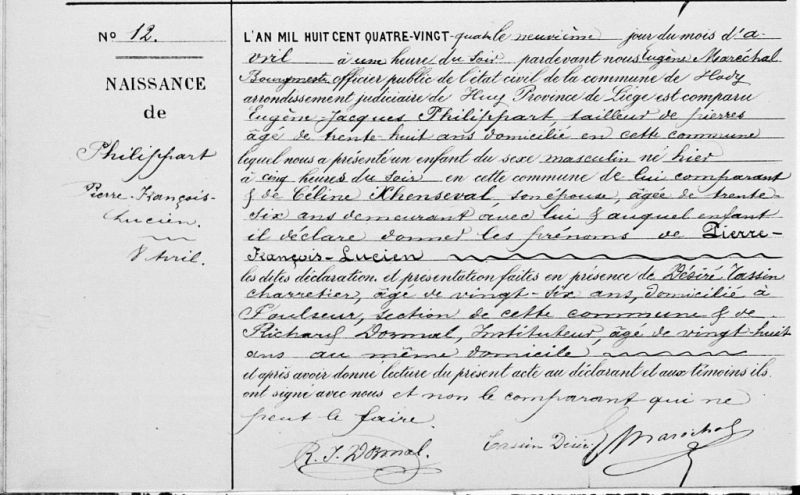 No 12.
NAISSANCE
de
Philippart
Pierre-François-
Lucien.
8 Avril.
L'AN MIL HUIT CENT QUATRE-VINGT-quatre le neuvième jour du mois d'a-
vril à une heure du soir pardevant nous Eugène Maréchal
Bourgmestre officier public de l'état civil de la commune de Hody
arrondissement judiciaire de Huy Province de Liège est comparu
Eugène-Jacques Philippart tailleur de pierres
âgé de trente-huit ans domicilié en cette commune
lequel nous a présenté un enfant du sexe masculin né hier
à cinq heures du soir en cette commune de lui comparant
& de Céline Khenseval, son épouse, âgée de trente-
six ans demeurant avec lui & auquel enfant
il déclare donner les prénoms de Pierre-
François-Lucien
les dites déclaration et présentation faites en présence de Désiré Tassin
charretier, âgé de vingt-six ans, domicilié à
Poulseur, section de cette commune & de
Richard Dormal, Instituteur, âgé de vingt-huit
ans au même domicile
et après avoir donné lecture du présent acte au déclarant et aux témoins ils
ont signé avec nous et non le comparant qui ne
peut le faire.
R. J. Dormal. Tassin Désiré Maréchal